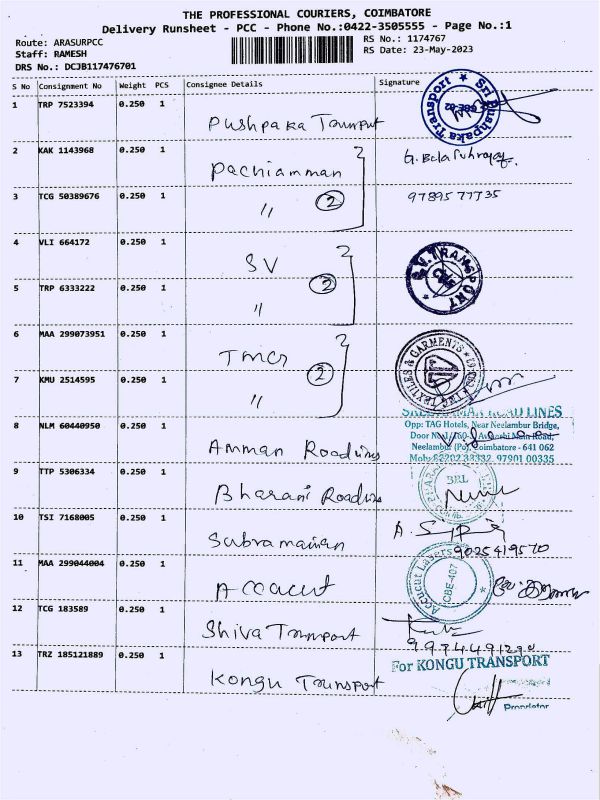 THE PROFESSIONAL COURIERS, COIMBATORE
Delivery Runsheet - PCC - Phone No.:0422-3505555 - Page No.:1
Route: ARASURPCC
Staff: RAMESH
DRS No.: DCJB117476701
RS No.: 1174767
RS Date: 23-May-2023
S No Consignment No Weight PCS Consignee Details Signature
1 TRP 7523394 0.250 1
Pushpaka Transport
Sri Pushpaka Transport
2 KAK 1143968 0.250 1
Pachiamman
3 TCG 50389676 0.250 1
" 2
97895 77735
4 VLI 664172 0.250 1
SV
S.V. TRANSPORT
5 TRP 6333222 0.250 1
" 2
6 MAA 299073951 0.250 1
TEXTILES & GARMENTS
7 KMU 2514595 0.250 1
" 2
8 NLM 60440950 0.250 1
Amman Roadlines
ROAD LINES
Opp: TAG Hotels, Near Neelambur Bridge,
Main Road,
Neelambur (Po), Coimbatore - 641 062
97901 00335
9 TTP 5306334 0.250 1
Bharani Roadlines
BRL
10 TSI 7168005 0.250 1
Subramanian
9025419570
11 MAA 299044004 0.250 1
Accucut
Accucut Lasers
CBE-407
12 TCG 183589 0.250 1
Shiva Transport
13 TRZ 185121889 0.250 1
Kongu Transport
For KONGU TRANSPORT
Proprietor